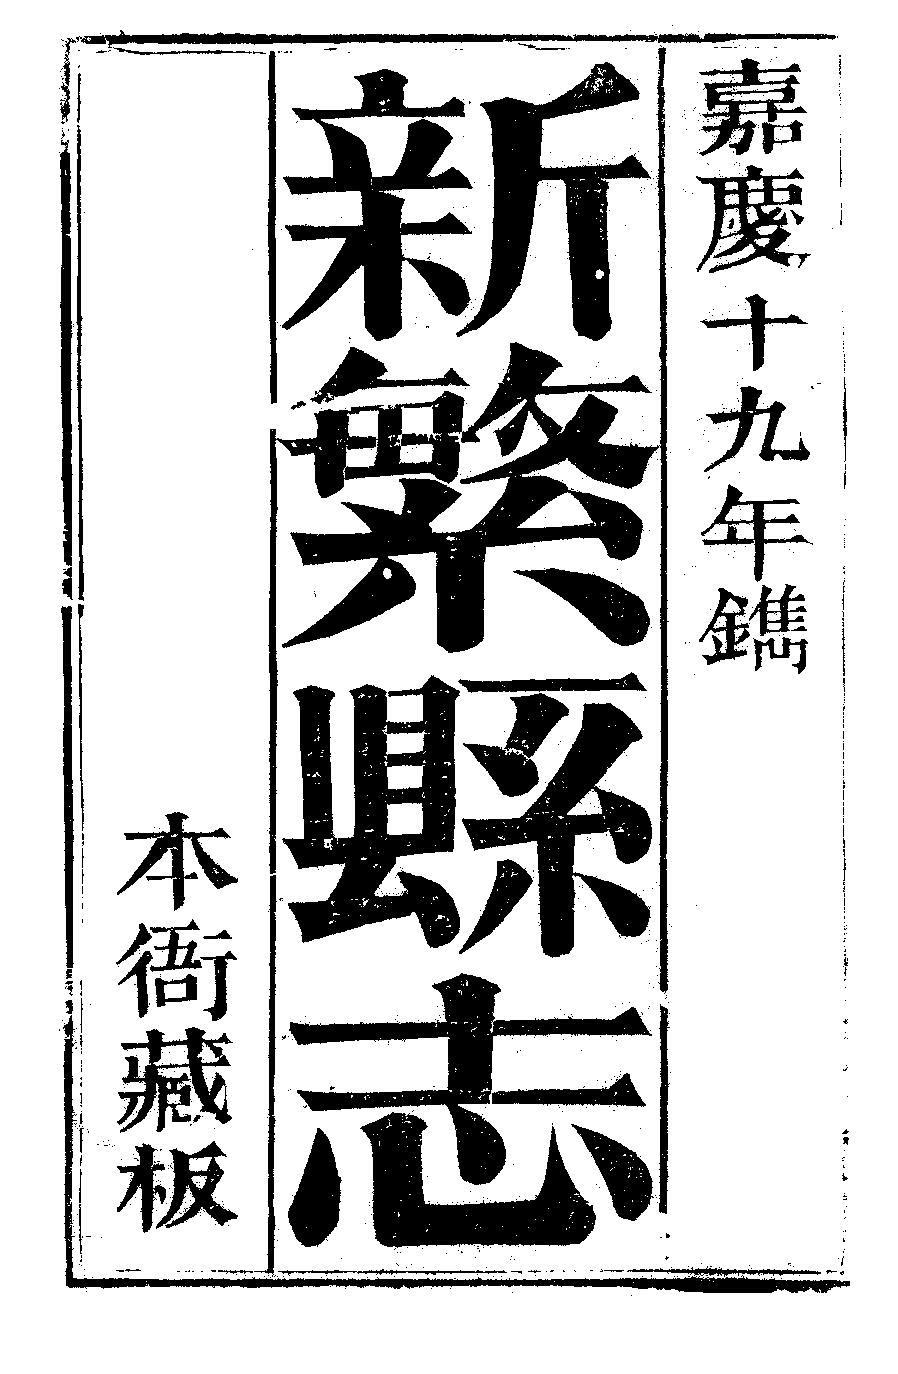 嘉慶十九年鐫
新繁縣志
本衙藏板